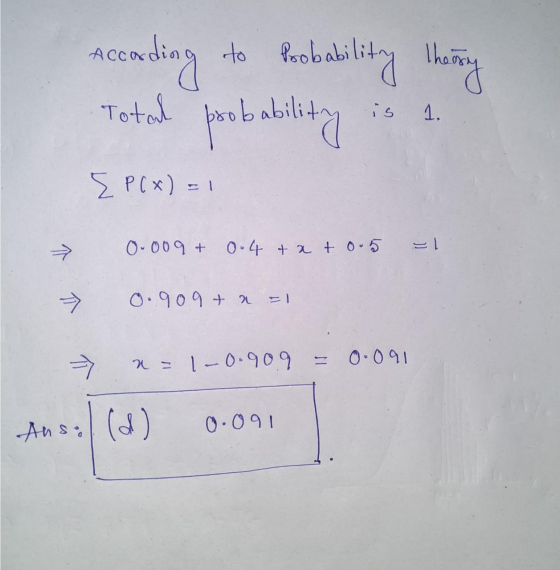 According to Probability theory
Total probability is 1.
∑ P(x) = 1
⇒ 0.009 + 0.4 + x + 0.5 = 1
⇒ 0.909 + x = 1
⇒ x = 1 - 0.909 = 0.091
Ans: (d) 0.091.